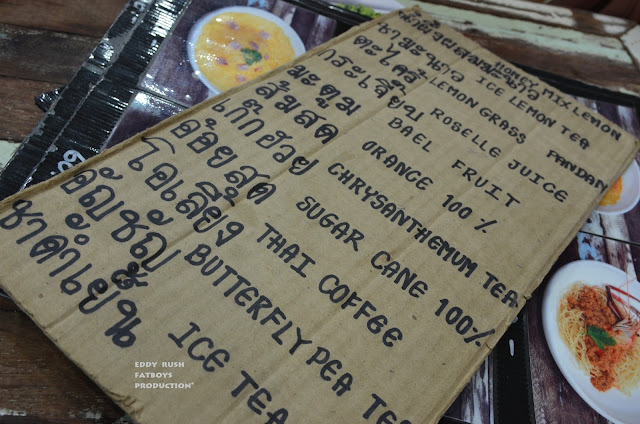 น้ำผึ้งผสมมะนาว HONEY MIX LEMON
ชามะนาว ICE LEMON TEA
ตะไคร้ LEMON GRASS PANDAN
กระเจี๊ยบ ROSELLE JUICE
มะตูม BAEL FRUIT
ส้มสด ORANGE 100 %
เก๊กฮวย CHRYSANTHEMUM TEA
อ้อยสด SUGAR CANE 100%
โอเลี้ยง THAI COFFEE
อัญชัญ BUTTERFLY PEA TEA
ชาดำเย็น ICE TEA
EDDY RUSH
FATBOYS
PRODUCTION"